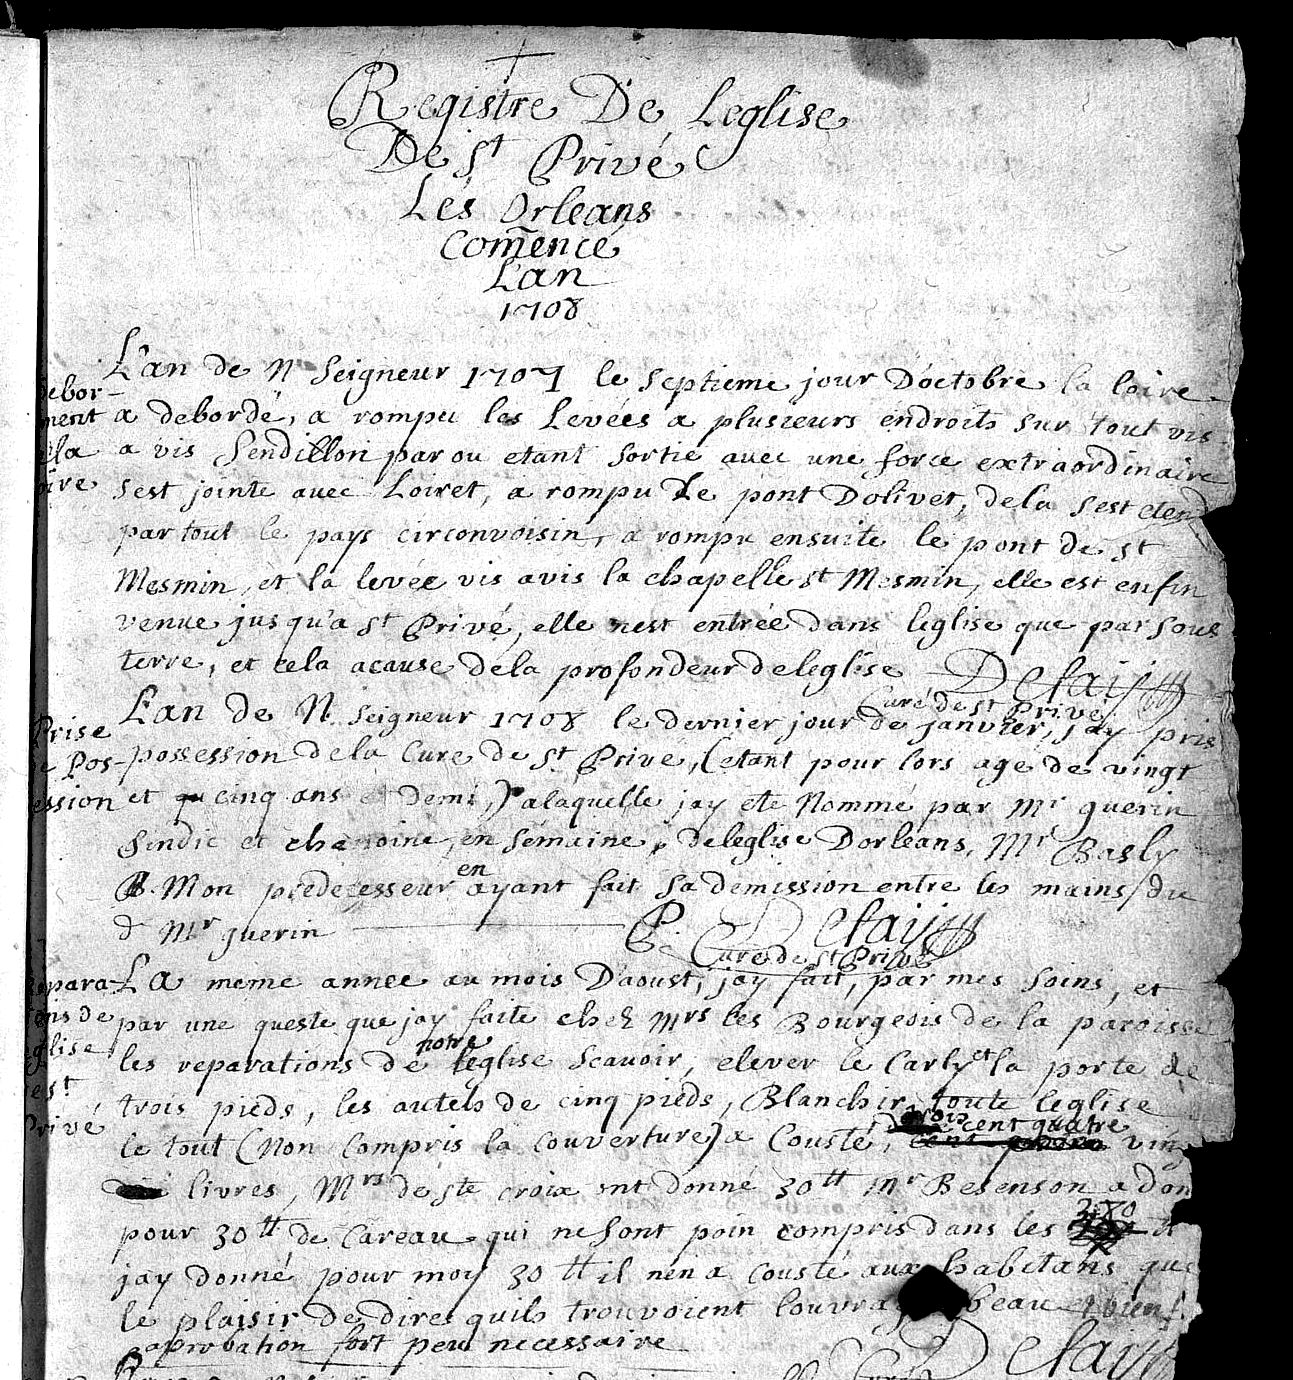 Registre De Leglise
De St Privé
Lés Orleans
Comencé
L'an
1708
debor-
ment
de la
oire
L'an de N Seigneur 1707 le septieme jour D'octobre la loire
a debordé, a rompu les Levées a plusieurs endroits sur tout vis
a vis Sendillon par ou etant sortie avec une force extraordinaire
sest jointe avec Loiret, a rompu Le pont Dolivet, dela sest etend
par tout le pays circonvoisin, a rompu ensuite le pont de St
Mesmin, et la levée vis avis la chapelle St Mesmin, elle est enfin
venue jusqu'a St Privé, elle nest entrée dans leglise que par sous
terre, et cela acause dela profondeur deleglise Delaÿ
Curé de St Privé
Prise
e Pos-
ession
L'an de N. Seigneur 1708 le dernier jour de janvier, jay pris
possession dela Cure de St Privé, (etant pour lors agé de vingt
et cinq ans et demi,) alaquelle jay eté Nommé par Mr guerin
Sindic et chanoine, en semaine, deleglise Dorleans, Mr Basly
Mon predecesseur en ayant fait sa demission entre les mains du
d Mr guerin P. Delaÿ
Curé de St Privé
epara-
ons de
eglise
e St
Privé
La meme année au mois D'aoust, jay fait, par mes soins, et
par une queste que jay faite chez Mrs les Bourgeois de la paroisse
les reparations de notre leglise Scavoir, elever le Carly et la porte de
trois pieds, les autels de cinq pieds, Blanchir toute leglise
le tout (Non compris la couverture) a Cousté, trois cent quatre vin
livres, Mrs de ste croix ont donné 30tt Mr Besenson a don
pour 30tt de Careau qui ne sont poin compris dans les 380 tt
jay donné pour moy 30 tt il nen a cousté aux habitans que
le plaisir de dire quils trouvoient louvrage beau
aprobation fort peu necessaire Delaÿ